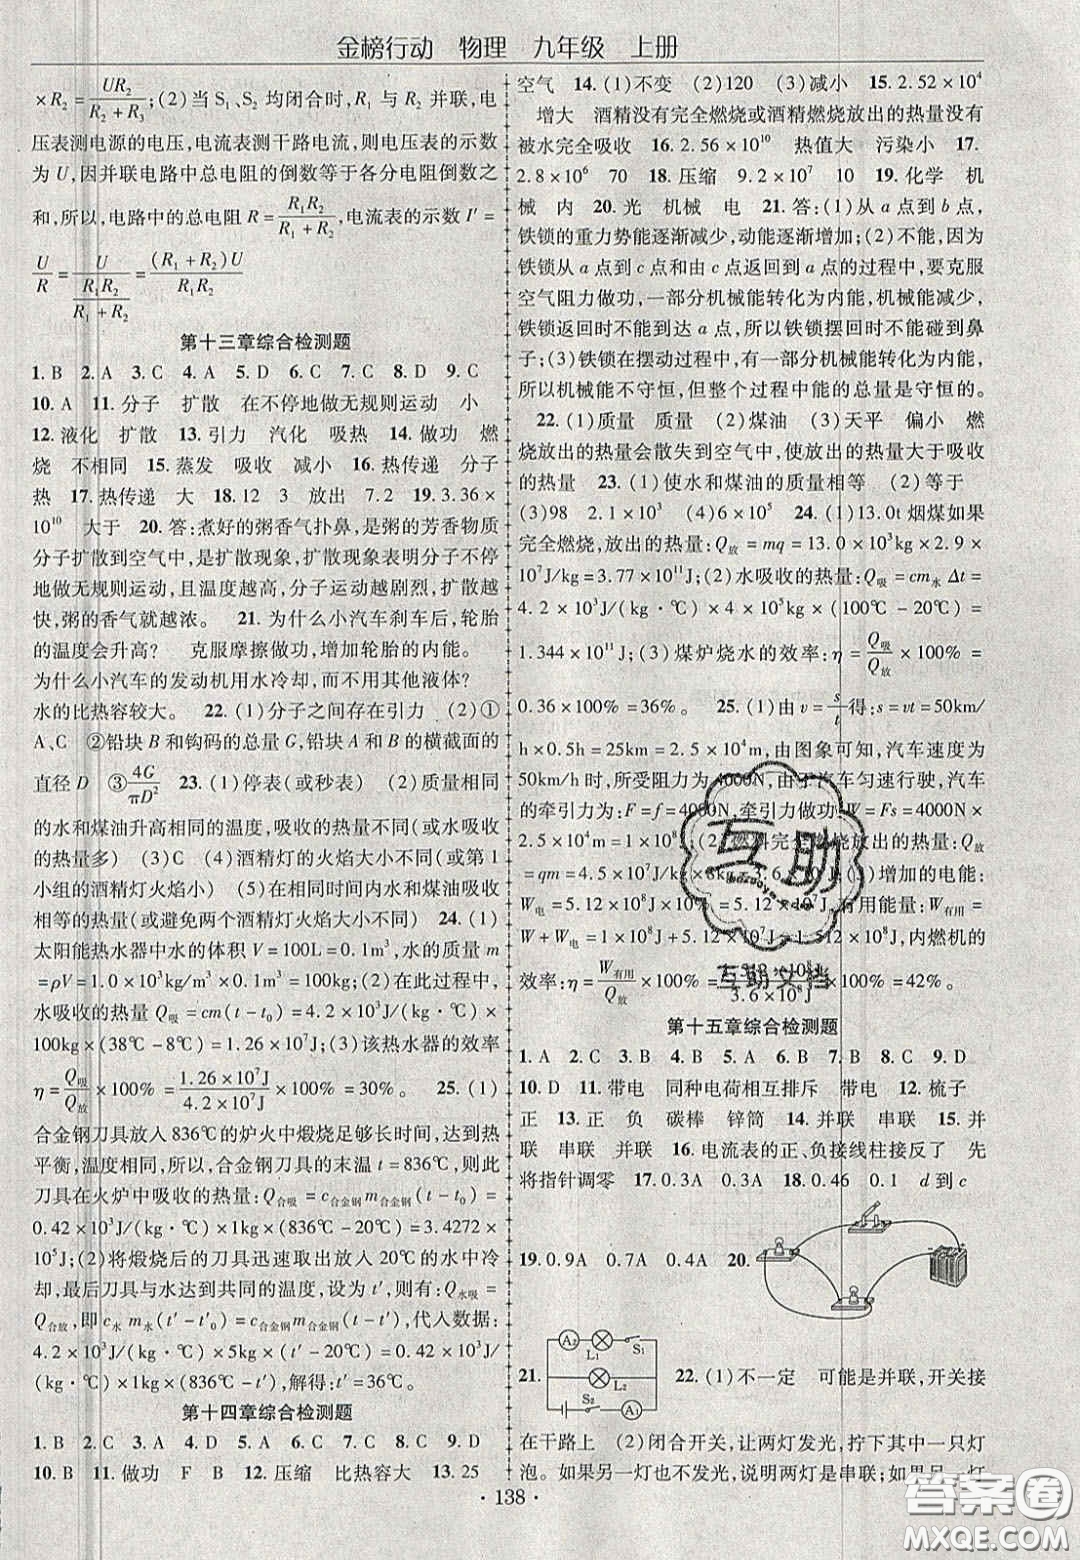 金榜行动 物理 九年级 上册
×R₂=UR₂/(R₂+R₃);(2)当S₁、S₂均闭合时,R₁与R₂并联,电
压表测电源的电压,电流表测干路电流,则电压表的示数
为U,因并联电路中总电阻的倒数等于各分电阻倒数之
和,所以,电路中的总电阻R=R₁R₂/(R₁+R₂),电流表的示数I′=
U/R=U/(R₁R₂/(R₁+R₂))=(R₁+R₂)U/R₁R₂
第十三章综合检测题
1.B 2.A 3.C 4.A 5.D 6.C 7.C 8.D 9.C
10.A 11.分子 扩散 在不停地做无规则运动 小
12.液化 扩散 13.引力 汽化 吸热 14.做功 燃
烧 不相同 15.蒸发 吸收 减小 16.热传递 分子
热 17.热传递 大 18.12 3 放出 7.2 19.3.36×
10¹⁰ 大于 20.答:煮好的粥香气扑鼻,是粥的芳香物质
分子扩散到空气中,是扩散现象,扩散现象表明分子不停
地做无规则运动,且温度越高,分子运动越剧烈,扩散越
快,粥的香气就越浓。 21.为什么小汽车刹车后,轮胎
的温度会升高? 克服摩擦做功,增加轮胎的内能。
为什么小汽车的发动机用水冷却,而不用其他液体?
水的比热容较大。 22.(1)分子之间存在引力 (2)①
A、C ②铅块B和钩码的总重G,铅块A和B的横截面的
直径D ③4G/πD² 23.(1)停表(或秒表) (2)质量相同
的水和煤油升高相同的温度,吸收的热量不同(或水吸收
的热量多) (3)C (4)酒精灯的火焰大小不同(或第1
小组的酒精灯火焰小) (5)在相同时间内水和煤油吸收
相等的热量(或避免两个酒精灯火焰大小不同) 24.(1)
太阳能热水器中水的体积V=100L=0.1m³,水的质量m
=ρV=1.0×10³kg/m³×0.1m³=100kg;(2)在此过程中,
水吸收的热量Q吸=cm(t-t₀)=4.2×10³J/(kg·℃)×
100kg×(38℃-8℃)=1.26×10⁷J;(3)该热水器的效率
η=Q吸/Q放×100%=1.26×10⁷J/4.2×10⁷J×100%=30%。 25.(1)
合金钢刀具放入836℃的炉火中煅烧足够长时间,达到热
平衡,温度相同,所以,合金钢刀具的末温t=836℃,此时
刀具在火炉中吸收的热量:Q合吸=c合金钢m合金钢(t-t₀)=
0.42×10³J/(kg·℃)×1kg×(836℃-20℃)=3.4272×
10⁵J;(2)将煅烧后的刀具迅速取出放入20℃的水中冷
却,最后刀具与水达到共同的温度,设为t′,则有:Q水吸=
Q合放,即c水m水(t′-t′₀)=c合金钢m合金钢(t-t′),代入数据:
4.2×10³J/(kg·℃)×5kg×(t′-20℃)=0.42×10³J/
(kg·℃)×1kg×(836℃-t′),解得:t′=36℃。
第十四章综合检测题
1.B 2.D 3.A 4.D 5.A 6.C 7.B 8.C 9.D
10.B 11.做功 F B 12.压缩 比热容大 13.25
空气 14.(1)不变 (2)120 (3)减小 15.2.52×10⁴
增大 酒精没有完全燃烧或酒精燃烧放出的热量没有
被水完全吸收 16.2.56×10¹⁰ 热值大 污染小 17.
2.8×10⁶ 70 18.压缩 9.2×10⁷ 10 19.化学 机
械 内 20.光 机械 电 21.答:(1)从a点到b点,
铁锁的重力势能逐渐减少,动能逐渐增加;(2)不能,因为
铁锁从a点到c点和由c点返回到a点的过程中,要克服
空气阻力做功,一部分机械能转化为内能,机械能减少,
铁锁返回时不能到达a点,所以铁锁摆回时不能碰到鼻
子;(3)铁锁在摆动过程中,有一部分机械能转化为内能,
所以机械能不守恒,但整个过程中能的总量是守恒的。
22.(1)质量 质量 (2)煤油 (3)天平 偏小 燃
烧放出的热量会散失到空气中,使放出的热量大于吸收
的热量 23.(1)使水和煤油的质量相等 (2)等于
(3)98 2.1×10³ (4)6×10⁵ 24.(1)13.0t烟煤如果
完全燃烧,放出的热量:Q放=mq=13.0×10³kg×2.9×
10⁷J/kg=3.77×10¹¹J;(2)水吸收的热量:Q吸=cm水Δt=
4.2×10³J/(kg·℃)×4×10⁵kg×(100℃-20℃)=
1.344×10¹¹J;(3)煤炉烧水的效率:η=Q吸/Q放×100%=
0.36×100%=36%。 25.(1)由v=s/t得:s=vt=50km/
h×0.5h=25km=2.5×10⁴m,由图象可知,汽车速度为
50km/h时,所受阻力为4000N,由于汽车匀速行驶,汽车
的牵引力为:F=f=4000N,牵引力做功:W=Fs=4000N×
2.5×10⁴m=10⁸J;(2)燃料完全燃烧放出的热量:Q放
=qm=4.5×10⁷J/kg×8kg=3.6×10⁸J;(3)增加的电能:
W电=5.12×10⁷J,有用能量:W有用=
W+W电
效率:η=W有用/Q放×100%=1.512×10⁸J/3.6×10⁸J×100%=42%。
第十五章综合检测题
1.A 2.C 3.B 4.B 5.A 6.B 7.B 8.C 9.D
10.D 11.带电 同种电荷相互排斥 带电 12.梳子
正 13.正 负 碳棒 锌筒 14.并联 串联 15.并
联 串联 并联 16.电流表的正、负接线柱接反了 先
将指针调零 17.0.3A 0.3A 18.0.46 0.1 d到c
19.0.9A 0.7A 0.4A 20.
21. A₂ L₁ S₁ L₂ S₂ A₁ 22.(1)不一定 可能是并联,开关接
在干路上 (2)闭合开关,让两灯发光,拧下其中一只灯
泡。如果另一灯也不发光,说明两灯是串联;如果另一灯
·138·
互助
互助文档
答案圈
MXQE.COM